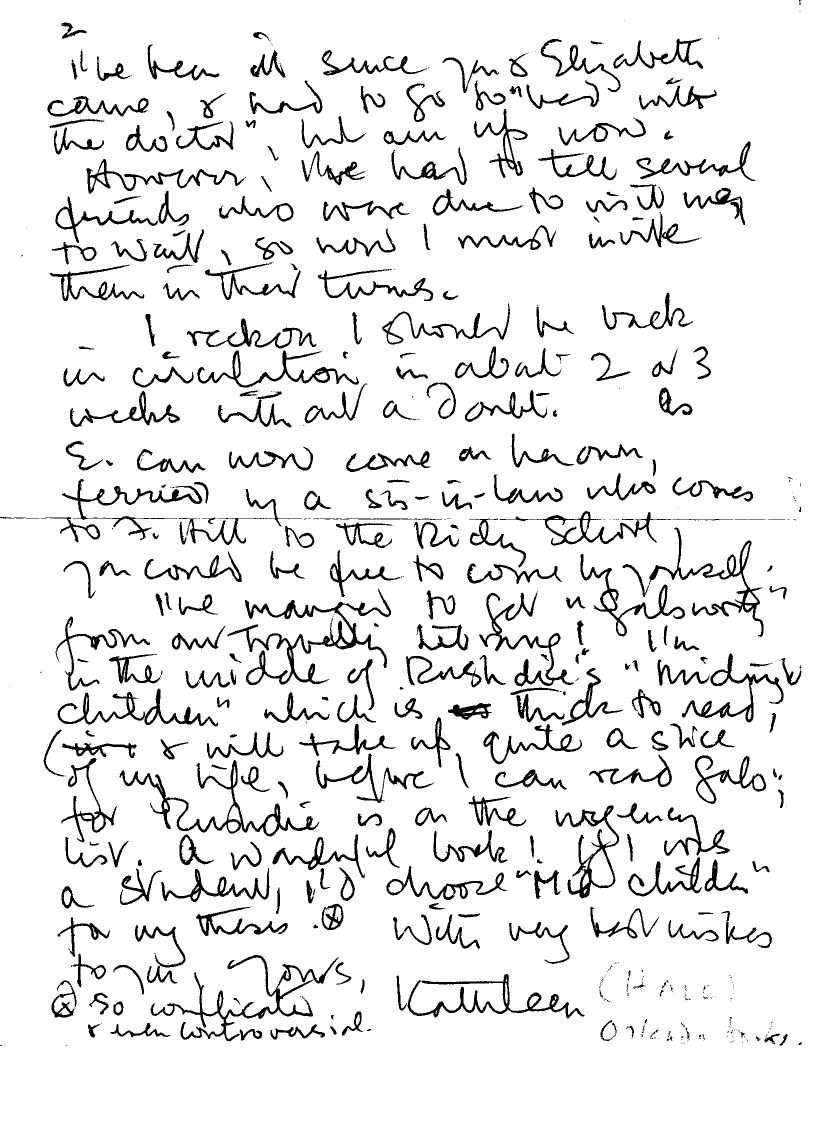 2
I've been ill since you & Elizabeth
came, & had to go to "bed with
the doctor", but am up now.
However, I've had to tell several
friends who were due to visit me,
to wait, so now I must invite
them in their turns.
I reckon I should be back
in circulation in about 2 or 3
weeks without a doubt. As
E. can now come on her own,
ferried by a sis-in-law who comes
to F. Hill to the Riding School,
you could be free to come by yourself.
I've managed to get "Galsworthy"
from our Travelling Library! I'm
in the middle of Rushdie's "Midnight
Children" which is thick to read,
( & will take up quite a slice
of my life, before I can read Gals";
for Rushdie is on the urgency
list. A wonderful book! If I was
a student, I'd choose "Mid Children"
for my thesis. ⊗ With very best wishes
to you, Yours,
⊗ so complicated Kathleen (HALE)
& even controversial. Orlando books.